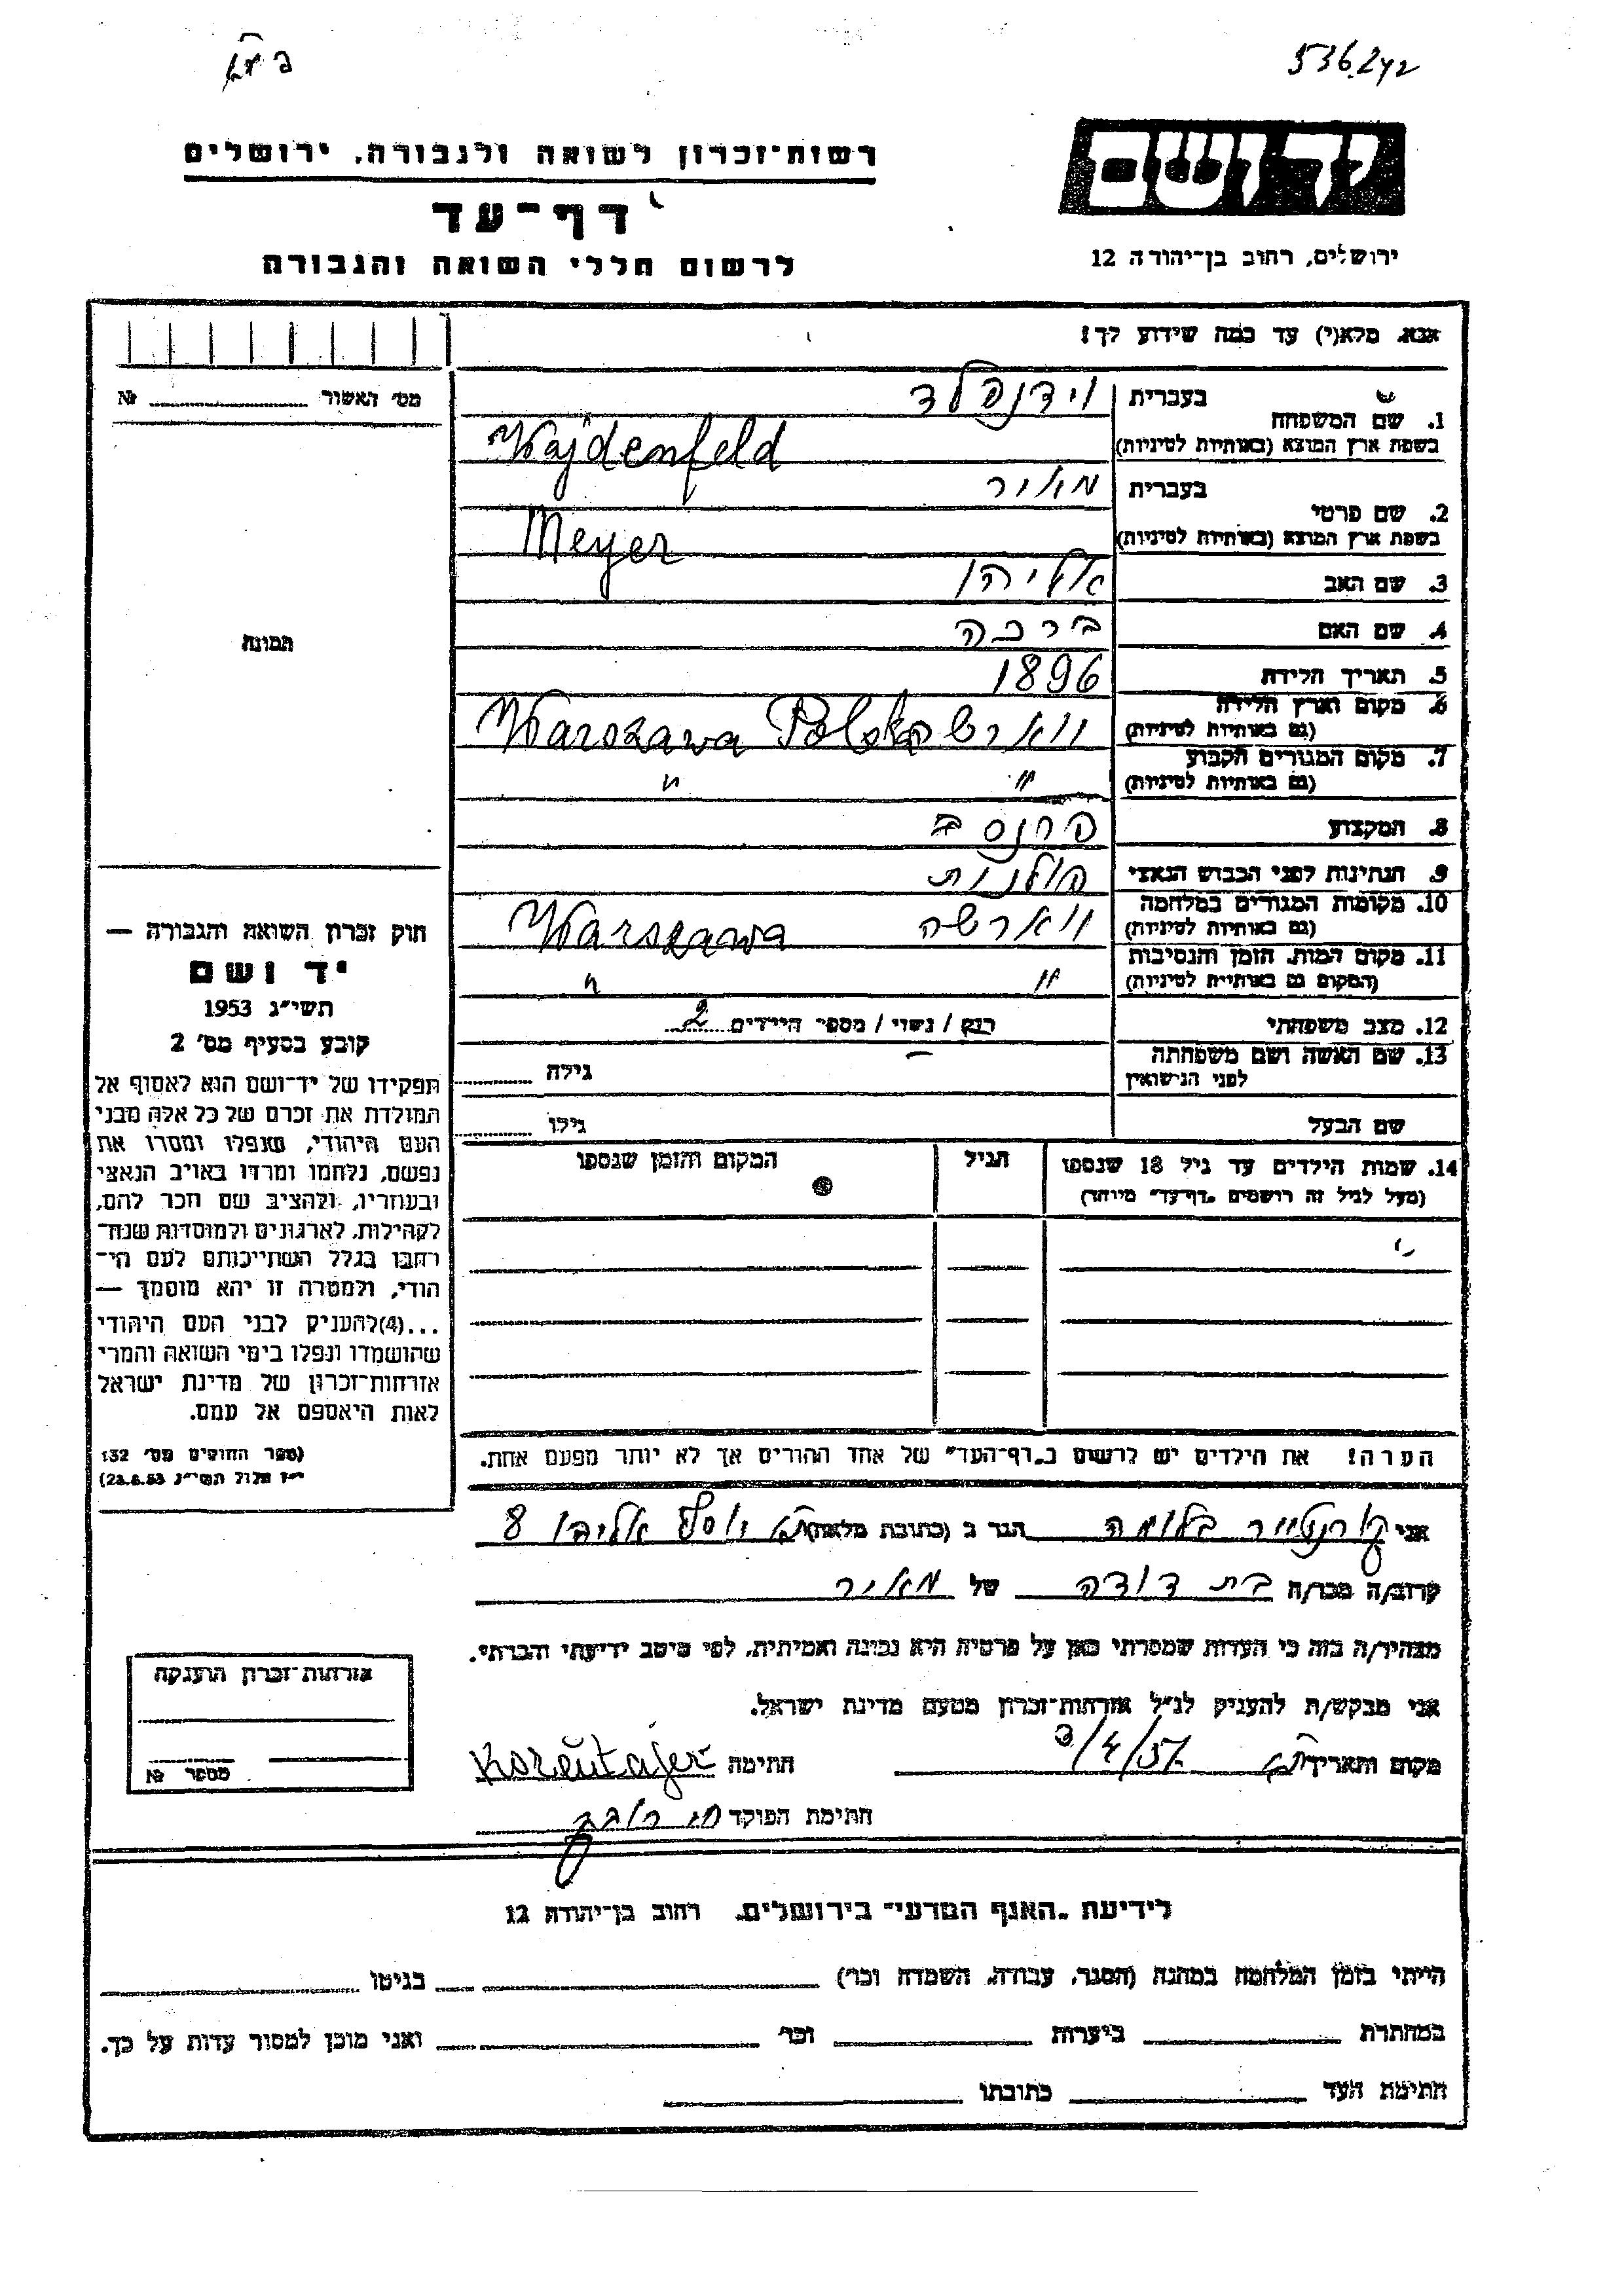 536.242
יד ושם
ירושלים, רחוב בן־יהודה 12
רשות־זכרון לשואה ולגבורה, ירושלים
דף־עד
לרשום חללי השואה והגבורה
אנא, מלא(י) עד כמה שידוע לך!
מס' האשור № 
1. שם המשפחה
בעברית וידנפלד
בשפת ארץ המוצא (באותיות לטיניות) Wajdenfeld
2. שם פרטי
בעברית מאיר
בשפת ארץ המוצא (באותיות לטיניות) Meyer
3. שם האב אליהו
4. שם האם ברכה
5. תאריך הלידה 1896
6. מקום וארץ הלידה
(גם באותיות לטיניות) Warszawa Polska
7. מקום המגורים הקבוע
(גם באותיות לטיניות) " "
8. המקצוע
9. הנתינות לפני הכבוש הנאצי פולנית
10. מקומות המגורים במלחמה
(גם באותיות לטיניות) ווארשה Warszawa
11. מקום המות, הזמן והנסיבות
(המקום גם באותיות לטיניות) " "
12. מצב משפחתי רוק / נשוי / מספר הילדים 2
13. שם האשה ושם משפחתה
לפני הנישואין – גילה
שם הבעל גילו
14. שמות הילדים עד גיל 18 שנספו הגיל המקום והזמן שנספו
(מעל לגיל זה רושמים "דף־עד" מיוחד)
הערה! את הילדים יש לרשום ב"דף־העד" של אחד ההורים אך לא יותר מפעם אחת.
תמונה
חוק זכרון השואה והגבורה —
יד ושם
תשי"ג 1953
קובע בסעיף מס' 2
תפקידו של יד־ושם הוא לאסוף אל
המולדת את זכרם של כל אלה מבני
העם היהודי, שנפלו ומסרו את
נפשם, נלחמו ומרדו באויב הנאצי
ובעוזריו, ולהציב שם וזכר להם,
לקהילות, לארגונים ולמוסדות שנח־
רבו בגלל השתייכותם לעם הי־
הודי, ולמטרה זו יהא מוסמך —
...(4)להעניק לבני העם היהודי
שהושמדו ונפלו בימי השואה והמרי
אזרחות־זכרון של מדינת ישראל
לאות היאספם אל עמם.
(ספר החוקים מס' 132
י"ז אלול תשי"ג 28.8.53)
אני קורנטייר בלומה הגר ב (כתובת מלאה) ת"א יוסף אליהו 8
קרוב/ה מכר/ה בת דודה של מאיר
מצהיר/ה בזה כי העדות שמסרתי כאן על פרטיה היא נכונה ואמיתית, לפי מיטב ידיעתי והכרתי.
אני מבקש/ת להעניק לנ"ל אזרחות־זכרון מטעם מדינת ישראל.
מקום ותאריך ת"א 3/4/57 חתימה Korentajer
חתימת הפוקד
אזרחות־זכרון הוענקה
מספר №
לידיעת "האגף המדעי" בירושלים, רחוב בן־יהודה 12
הייתי בזמן המלחמה במחנה (הסגר, עבודה, השמדה וכו') בגיטו
במחתרת ביערות וכו' ואני מוכן למסור עדות על כך.
חתימת העד כתובתו